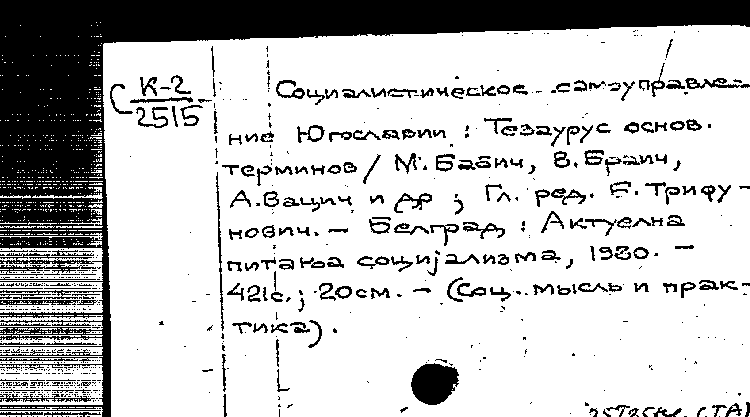 С К-2
2515
Социалистическое самоуправле-
ние Югославии : Тезаурус основ.
терминов / М. Бабич, В. Браич,
А. Вацич и др ; Гл. ред. Б. Трифу-
нович. – Белград : Актуелна
питања социјализма, 1980. –
421с.; 20см. – (Соц. мысль и прак-
тика).